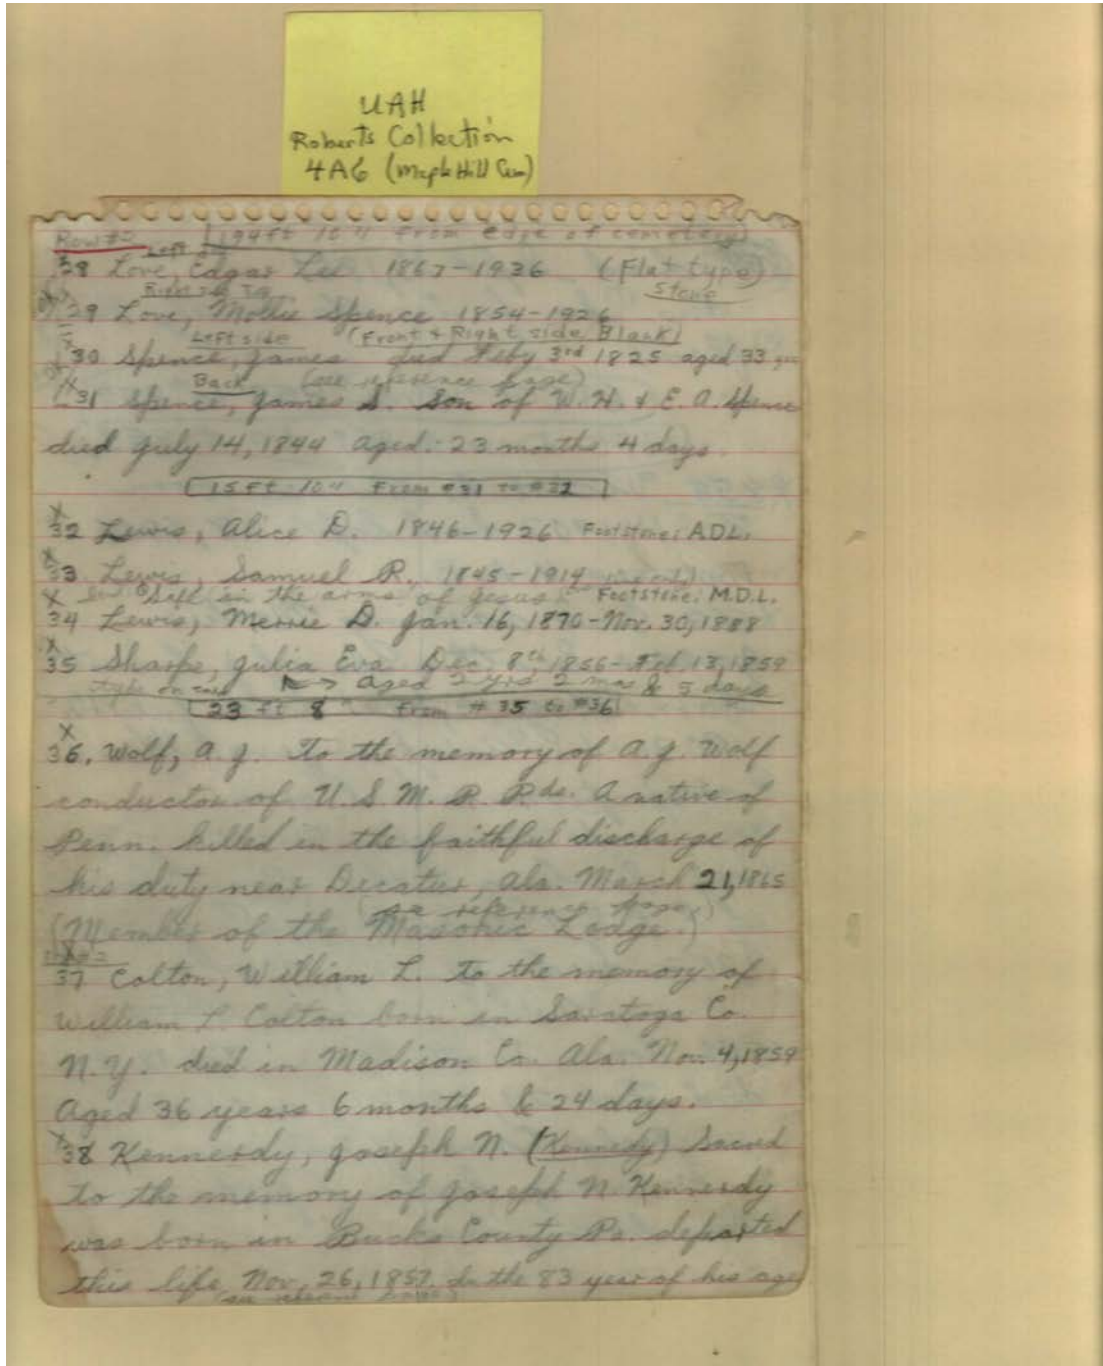 UAH
Roberts Collection
4A6 (Maple Hill Cem)
Row #2 194 ft 10" from edge of cemetery
Left
28 Love, Edgar Lee 1867-1936 (Flat type)
Right side Stone
29 Love, Mollie Spence 1854-1926
Left side (Front & Right side Blank)
30 Spence, James died Feby 3rd 1825 aged 33 yrs
Back (see reference page)
31 Spence, James S. Son of W. H. & E. A. Spence
died July 14, 1844 aged: 23 months 4 days.
15 ft 10" From #31 to #32
X
32 Lewis, Alice D. 1846-1926 Footstone: A.D.L.
33 Lewis, Samuel R. 1845-1914
X Safe in the arms of Jesus Footstone: M.D.L.
34 Lewis, Merrie D. Jan. 16, 1870-Nov. 30, 1888
X
35 Sharpe, Julia Eva Dec. 8th, 1856-Feb. 13, 1859
aged 2 yrs 2 mos & 5 days
23 ft 8" from #35 to #36
X
36. Wolf, A. J. To the memory of A. J. Wolf
conductor of U. S. M. R. Rds. A native of
Penn. killed in the faithful discharge of
his duty near Decatur, Ala. March 21, 1865
(see reference page)
(Member of the Masonic Lodge.)
37 Colton, William L. To the memory of
William L Colton born in Saratoga Co.
N.Y. died in Madison Co. Ala. Nov. 4, 1859
Aged 36 years 6 months & 24 days.
X
38 Kennerdy, Joseph N. (Kennedy) Sacred
to the memory of Joseph N. Kennerdy
was born in Bucks County Pa. departed
this life Nov. 26, 1857. In the 83 year of his age